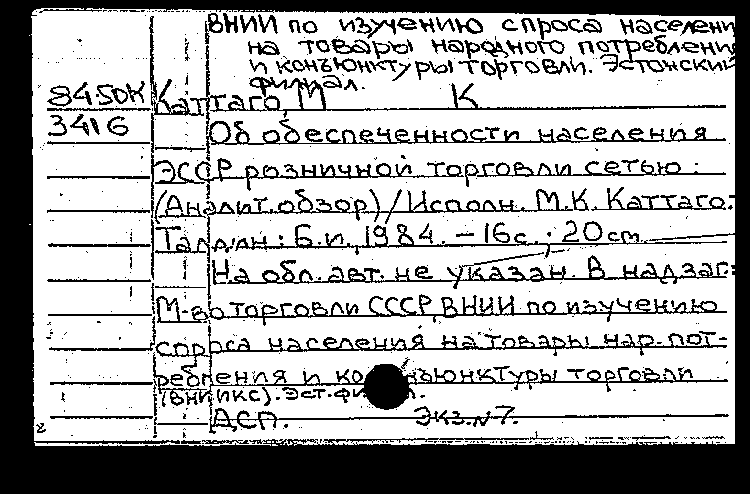 ВНИИ по изучению спроса населени
на товары народного потреблени
и конъюнктуры торговли. Эстонский
филиал.
8450К Каттаго, М К
3416 Об обеспеченности населения
ЭССР розничной торговли сетью:
(Аналит. обзор) / Исполн. М.К. Каттаго.
Таллин: Б.и., 1984. – 16с.; 20см
На обл. авт. не указан. В надзаг:
М-во торговли СССР, ВНИИ по изучению
спроса населения на товары нар. пот-
ребления и конъюнктуры торговли
(ВНИИКС). Эст. фи
ДСП. Экз. № 7.
2